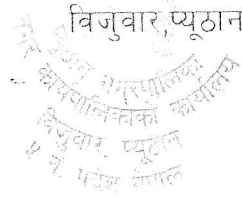 विजुवार,प्यूठान
प्यूठान नगरपालिका
नगर कार्यपालिकाको कार्यालय
विजुवार, प्यूठान
५ नं. प्रदेश नेपाल